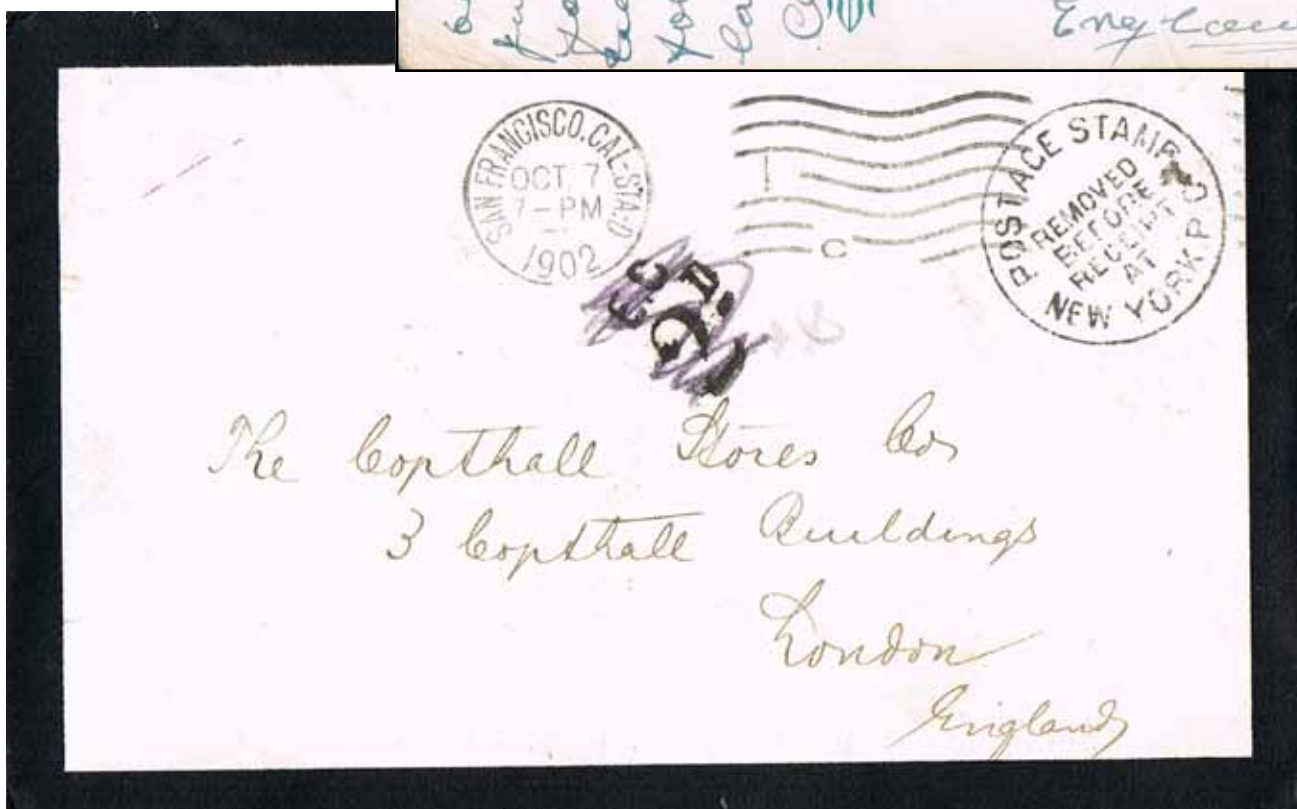 England
SAN FRANCISCO, CAL-STA-D
OCT 7
7-PM
1902
C
POSTAGE STAMP
REMOVED
BEFORE
RECEIPT
AT
NEW YORK P.O
The Copthall Stores Co
3 Copthall Buildings
London
England